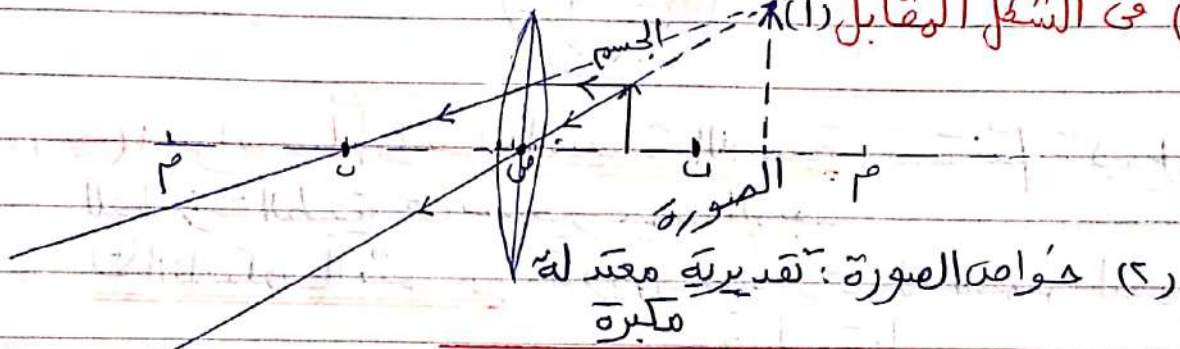 ) فى الشكل المقابل (١)
الجسم
م ن ن م
الصورة
(٢) خواص الصورة : تقديرية معتدلة
مكبرة